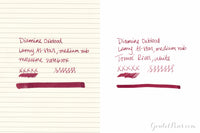 Diamine Oxblood
Lamy Al-Star, medium nib
xxxxx
Diamine Oxblood
Lamy Al-Star, medium nib
Tomoe River, white
xxxxx